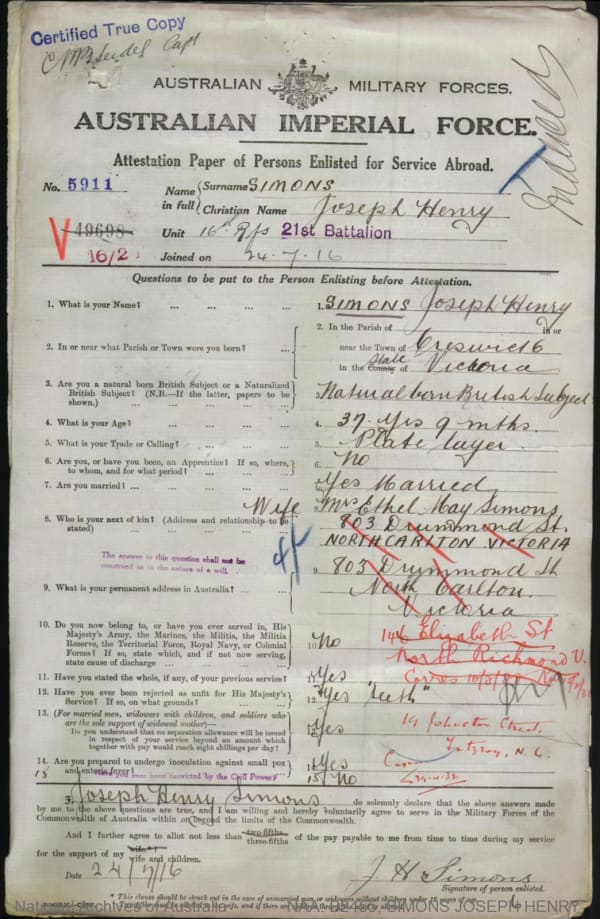 Certified True Copy
Capt
Indexed
AUSTRALIAN MILITARY FORCES.
AUSTRALIAN IMPERIAL FORCE.
Attestation Paper of Persons Enlisted for Service Abroad.
No. 5911
Name in full { Surname SIMONS
Christian Name Joseph Henry
49698
16/21
Unit 16 Rfs 21st Battalion
Joined on 24.7.16
Questions to be put to the Person Enlisting before Attestation.
1. What is your Name? ... ... ... ...
1. SIMONS Joseph Henry
2. In or near what Parish or Town were you born? ...
2. In the Parish of in or
near the Town of Creswick
in the County of State Victoria
3. Are you a natural born British Subject or a Naturalized
British Subject? (N.B.—If the latter, papers to be
shown.) ... ... ... ... ...
3. Natural born British Subject
4. What is your Age? ... ... ... ...
4. 37 yrs 9 mths.
5. What is your Trade or Calling? ... ... ...
5. Plate layer
6. Are you, or have you been, an Apprentice? If so, where,
to whom, and for what period? ... ... ...
6. No
7. Are you married? ... ... ... ... ...
7. Yes Married
8. Who is your next of kin? (Address and relationship to be
stated) ... ... ... ...
Wife
8. Mrs Ethel May Simons
803 Drummond St.
NORTH CARLTON VICTORIA
The answer to this question shall not be
construed as in the nature of a will.
9. What is your permanent address in Australia? ...
9. 803 Drummond St
North Carlton.
Victoria
10. Do you now belong to, or have you ever served in, His
Majesty's Army, the Marines, the Militia, the Militia
Reserve, the Territorial Force, Royal Navy, or Colonial
Forces? If so, state which, and if not now serving,
state cause of discharge ... ... ...
10. No
Elizabeth St
North Richmond V.
11. Have you stated the whole, if any, of your previous service?
11. Yes
12. Have you ever been rejected as unfit for His Majesty's
Service? If so, on what grounds? ... ...
12. Yes "teeth"
13. (For married men, widowers with children, and soldiers who
are the sole support of widowed mother)—
Do you understand that no separation allowance will be issued
in respect of your service beyond an amount which
together with pay would reach eight shillings per day?
13. Yes
Johnston Street,
Fitzroy, N.
14. Are you prepared to undergo inoculation against small pox
and enteric fever?
14. Yes
15 Have you ever been convicted by the Civil Power?
15 No
I, Joseph Henry Simons do solemnly declare that the above answers made
by me to the above questions are true, and I am willing and hereby voluntarily agree to serve in the Military Forces of the
Commonwealth of Australia within or beyond the limits of the Commonwealth.
And I further agree to allot not less than two-fifths three-fifths of the pay payable to me from time to time during my service
for the support of my wife
wife and children.
Date 24/7/16
J H Simons
Signature of person enlisted.
* This clause should be struck out in the case of unmarried men, or widowers without children under 18 years of age
National Archives of Australia
NAA: B2455, SIMONS JOSEPH HENRY